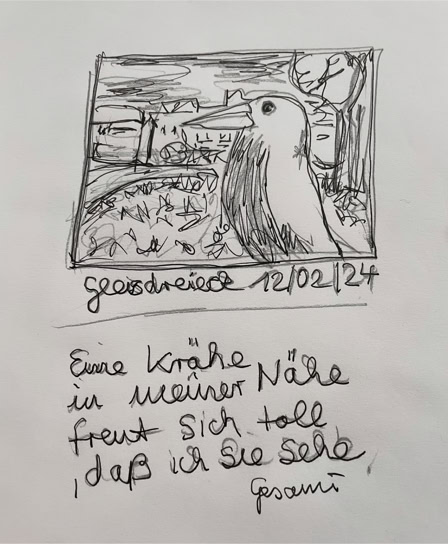 Gleisdreieck 12/02/24
Eine Krähe
in meiner Nähe
freut sich toll
, daß ich sie sehe